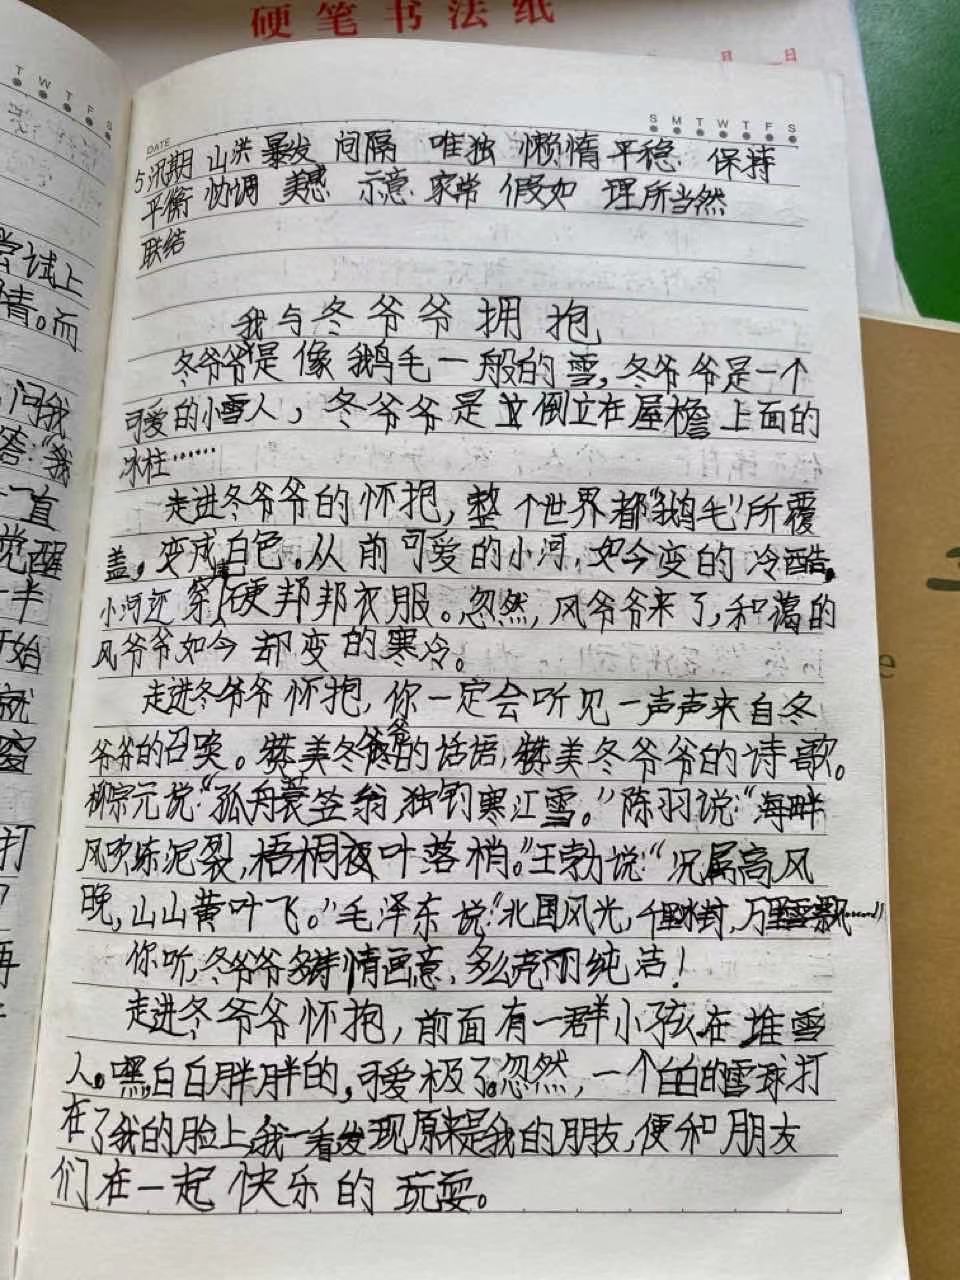 硬笔书法纸
月 日
T W T F S
S M T W T F S
DATE
尝试上
情。而
问我
答:“我
一直
觉醒
一半
开始
就
窗
打
再
5 汛期 山洪 暴发 间隔 唯独 懒惰 平稳 保持
平衡 协调 美感 示意 家常 假如 理所当然
联结
我与冬爷爷拥抱
冬爷爷是像鹅毛一般的雪,冬爷爷是一个
可爱的小雪人,冬爷爷是立倒立在屋檐上面的
冰柱……
走进冬爷爷的怀抱,整个世界都“鹅毛”所覆
盖,变成白色。从前可爱的小河,如今变的冷酷。
小河还穿揍硬邦邦衣服。忽然,风爷爷来了,和蔼的
风爷爷如今却变的寒冷。
走进冬爷爷怀抱,你一定会听见一声声来自冬
爷爷的召唤。赞美冬爷爷的话语,赞美冬爷爷的诗歌。
柳宗元说:“孤舟蓑笠翁,独钓寒江雪。”陈羽说:“海畔
风吹冻泥裂,梧桐夜叶落梢。”王勃说:“况属高风
晚,山山黄叶飞。”毛泽东说:“北国风光,千里冰封,万里雪飘……”
你听,冬爷爷多诗情画意,多么亮丽纯洁!
走进冬爷爷怀抱,前面有一群小孩在堆雪
人。嘿,白白胖胖的,可爱极了。忽然,一个白白的雪球打
在了我的脸上,我一看发现原来是我的朋友,便和朋友
们在一起快乐的玩耍。